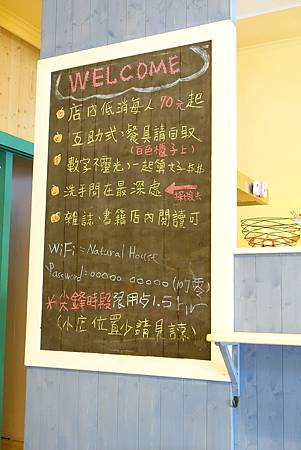 WELCOME
店內低消每人70元起
互助式,餐具請自取
(白色櫃子上)
數字不靈光,一起算大好
洗手間在最深處
雜誌、書籍店內閱讀可
WiFi = Natural House
Password: 00000 00000 (10個零)
尖鋒時段限用1.5 hr
(小店位置少請見諒)